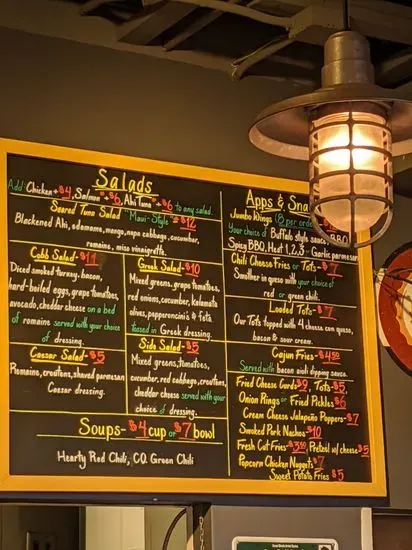 Salads
Add: Chicken + $4, Salmon + $6, Ahi Tuna + $6 to any salad.
Seared Tuna Salad "Maui-Style" - $12
Blackened Ahi, edamame, mango, napa cabbage, cucumber,
romaine, miso vinaigrette.
Cobb Salad - $11
Diced smoked turkey, bacon,
hard-boiled eggs, grape tomatoes,
avocado, cheddar cheese on a bed
of romaine served with your choice
of dressing.
Greek Salad - $10
Mixed greens, grape tomatoes,
red onions, cucumber, kalamata
olives, pepperoncini, & feta
tossed in Greek dressing.
Caesar Salad - $5
Romaine, croutons, shaved parmesan
Caesar dressing.
Side Salad - $5
Mixed greens, tomatoes,
cucumber, red cabbage, croutons,
cheddar cheese served with your
choice of dressing.
Soups - $4 cup or $7 bowl
Hearty Red Chili, CO. Green Chili
Apps & Sna
Jumbo Wings (8 per orde
your choice of Buffalo style sauce, BBQ,
Spicy BBQ, Heat 1, 2, 3 - Garlic parmesan
Chili Cheese Fries or Tots - $7
Smother in queso with your choice of
red or green chili.
Loaded Tots - $7
Our Tots topped with 4 cheese con queso,
bacon & sour cream.
Cajun Fries - $4.50
Served with bacon aioli dipping sauce.
Fried Cheese Curds - $9, Tots - $5
Onion Rings or Fried Pickles $6
Cream Cheese Jalapeño Poppers - $7
Smoked Pork Nachos - $10
Fresh Cut Fries - $3.50 Pretzel w/ cheese $5
Popcorn Chicken Nuggets $7
Sweet Potato Fries $5